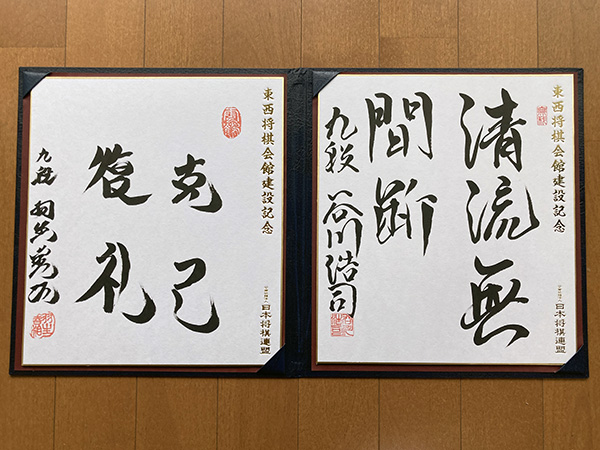 東西将棋会館建設記念
清流無
間断
九段 谷川浩司
日本将棋連盟
東西将棋会館建設記念
克己
復礼
九段 羽生善治